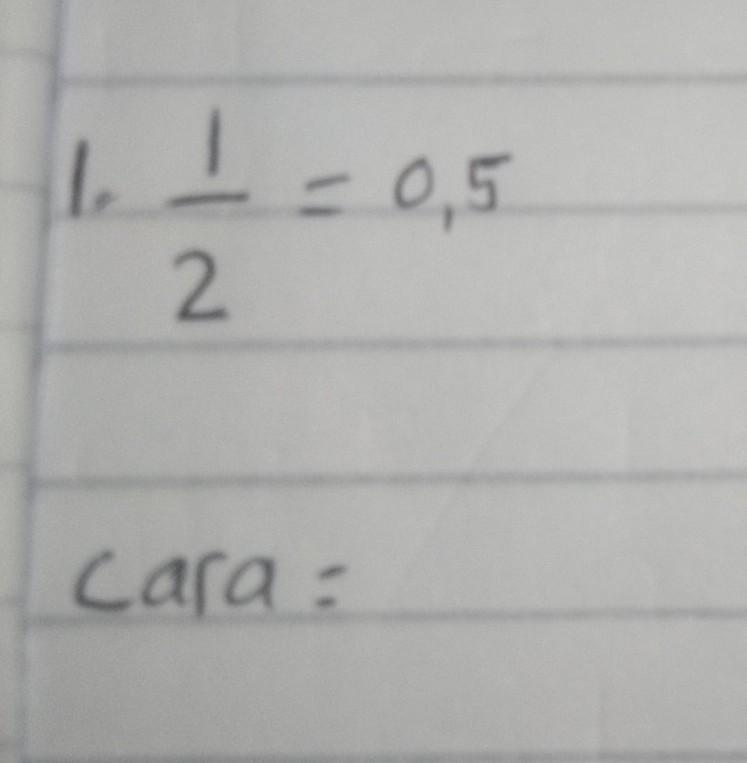 1. 1/2 = 0,5
Cara =